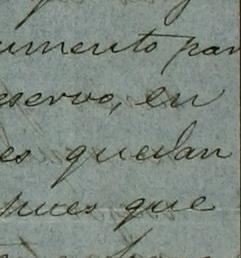 umento par
eservo, en
es quedan
pues que